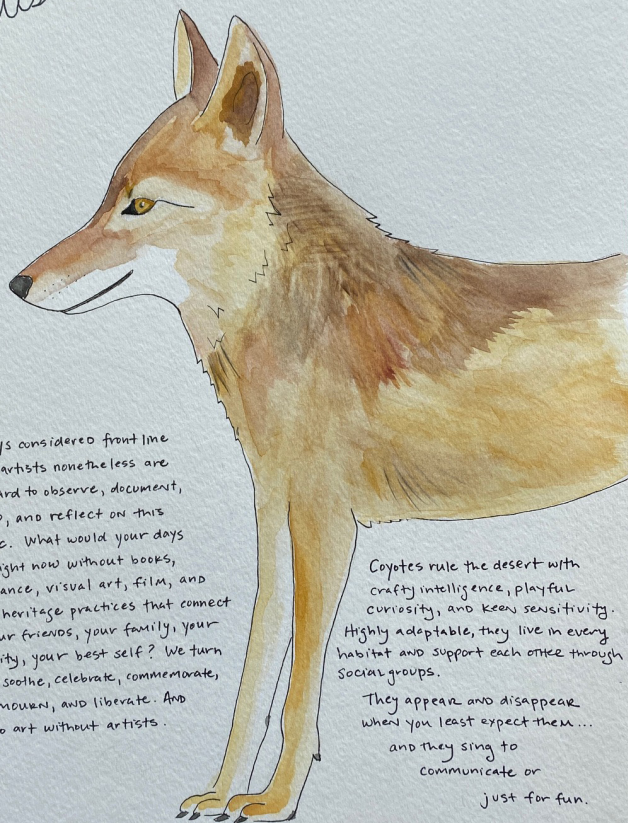 ys considered front line
artists nonetheless are
ard to observe, document,
, and reflect on this
c. What would your days
ight now without books,
ance, visual art, film, and
heritage practices that connect
ur friends, your family, your
ity, your best self? We turn
soothe, celebrate, commemorate,
mourn, and liberate. And
o art without artists.
Coyotes rule the desert with
crafty intelligence, playful
curiosity, and keen sensitivity.
Highly adaptable, they live in every
habitat and support each other through
social groups.
They appear and disappear
when you least expect them...
and they sing to
communicate or
just for fun.